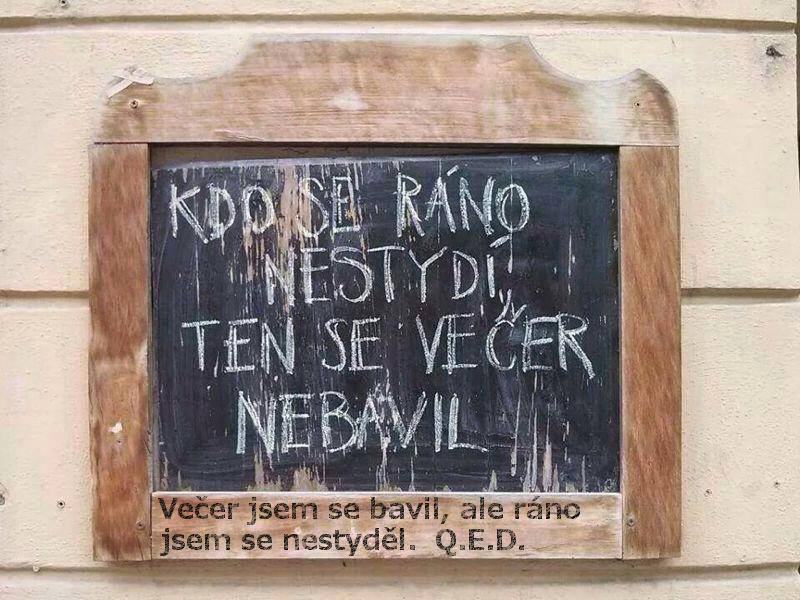 KDO SE RÁNO
NESTYDÍ,
TEN SE VEČER
NEBAVIL
Večer jsem se bavil, ale ráno
jsem se nestyděl. Q.E.D.